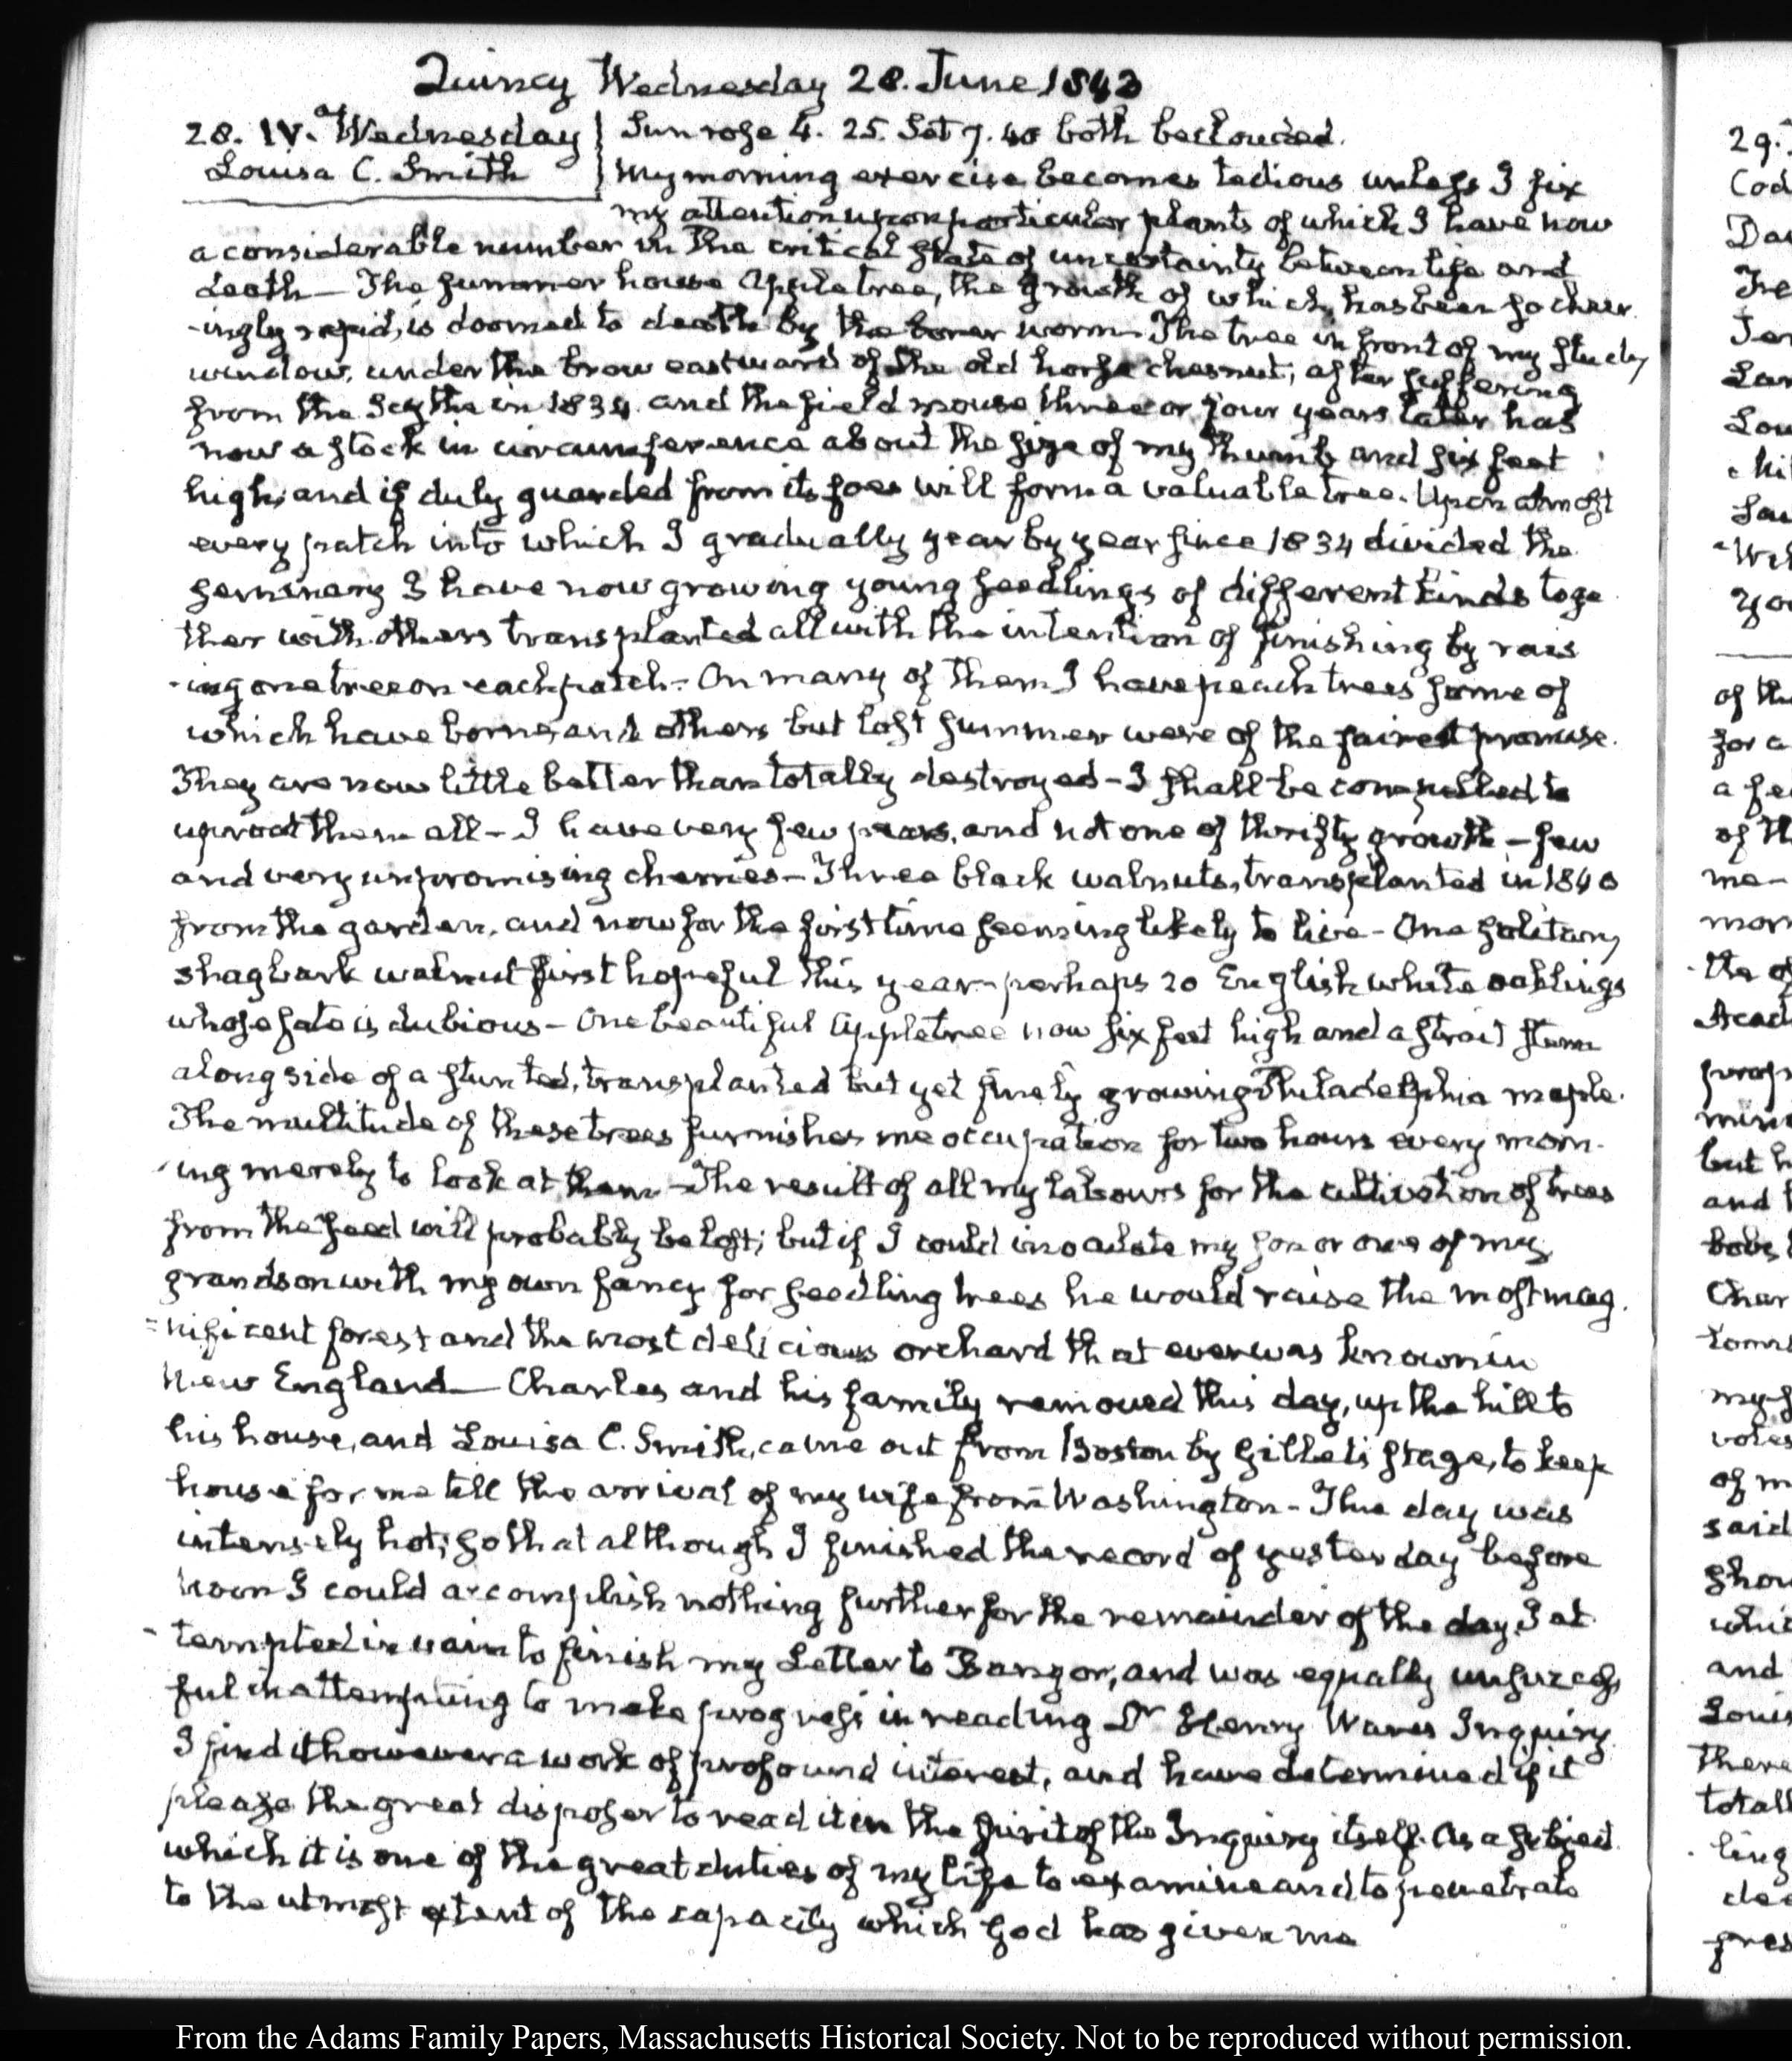 Quincy Wednesday 28. June 1843
28. IV. Wednesday
Louisa C. Smith
Sun rose 4. 25. Set 7. 40 both beclouded.
My morning exercise becomes tedious unless I fix
my attention upon particular plants of which I have now
a considerable number in the critical state of uncertainty between life and
death — The summer house Apple tree, the growth of which, has been so cheer
-ingly rapid, is doomed to death by the borer worm. The tree in front of my study
window, under the brow eastward of the old horse chesnut; after suffering
from the Scythe in 1834 and the field mouse three or four years later has
now a stock in circumference about the size of my thumb and six feet
high, and if duly guarded from its foes will form a valuable tree. Upon almost
every patch into which I gradually year by year since 1834 divided the
seminary I have now growing young seedlings of different kinds toge
ther with others transplanted all with the intention of finishing by rais
-ing one tree on each patch - On many of them I have peach trees some of
which have borne, and others but last summer were of the fairest promise.
They are now little better than totally destroyed - I shall be compelled to
uproot them all - I have very few pears, and not one of thrifty growth - few
and very unpromising cherries - Three black walnuts, transplanted in 1840
from the garden, and now for the first time seeming likely to live - One solitary
shagbark walnut first hopeful this year - perhaps 20 English white oaklings
whose fate is dubious - One beautiful Apple tree now six feet high and a strait stem
along side of a stunted, transplanted but yet finely growing Philadelphia maple.
The multitude of these trees furnishes me occupation for two hours every morn-
ing merely to look at them - The result of all my labours for the cultivation of trees
from the seed will probably be lost; but if I could inoculate my son or one of my
grandson with my own fancy for seedling trees he would raise the most mag
=nificent forest and the most delicious orchard that ever was known in
New England — Charles and his family removed this day, up the hill to
his house, and Louisa C. Smith, came out from Boston by Gillett's Stage, to keep
house for me till the arrival of my wife from Washington - The day was
intensely hot; so that although I finished the record of yesterday before
noon I could accomplish nothing further for the remainder of the day. I at
-tempted in vain to finish my Letter to Bangor, and was equally unsuccess
ful in attempting to make progress in reading Dr Henry Wares Inquiry
I find it however a work of profound interest, and have determined if it
please the great disposer to read it in the spirit of the Inquiry itself. As a subject
which it is one of the great duties of my life to examine and to penetrate
to the utmost extent of the capacity which God has given me
29.
Cod
of the
for a
of th
me-
mor
the of
Acad
mine
but h
and
Char
my f
votes
of m
said
show
whic
and
Louis
there
totall
ling
From the Adams Family Papers, Massachusetts Historical Society. Not to be reproduced without permission.